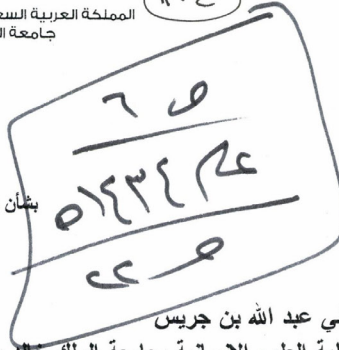 المملكة العربية السع
جامعة ال
ص ٦
عام ١٤٣٤ه
بشأن
ص ٢٢
ي عبد الله بن جريس